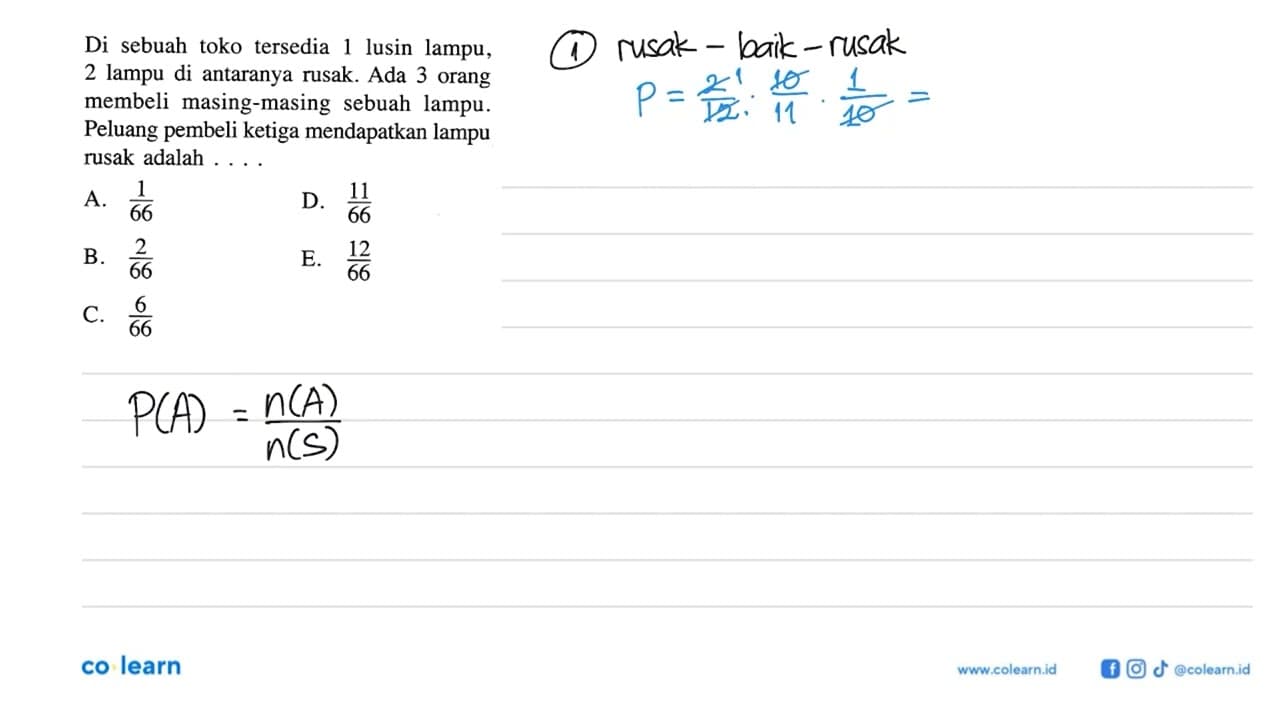 Di sebuah toko tersedia 1 lusin lampu,
2 lampu di antaranya rusak. Ada 3 orang
membeli masing-masing sebuah lampu.
Peluang pembeli ketiga mendapatkan lampu
rusak adalah . . . .
A. 1/66
B. 2/66
C. 6/66
D. 11/66
E. 12/66
P(A) = n(A)/n(S)
① rusak – baik – rusak
P = 2/12 1 . 10/11 . 1/10 =
co learn
www.colearn.id
@colearn.id